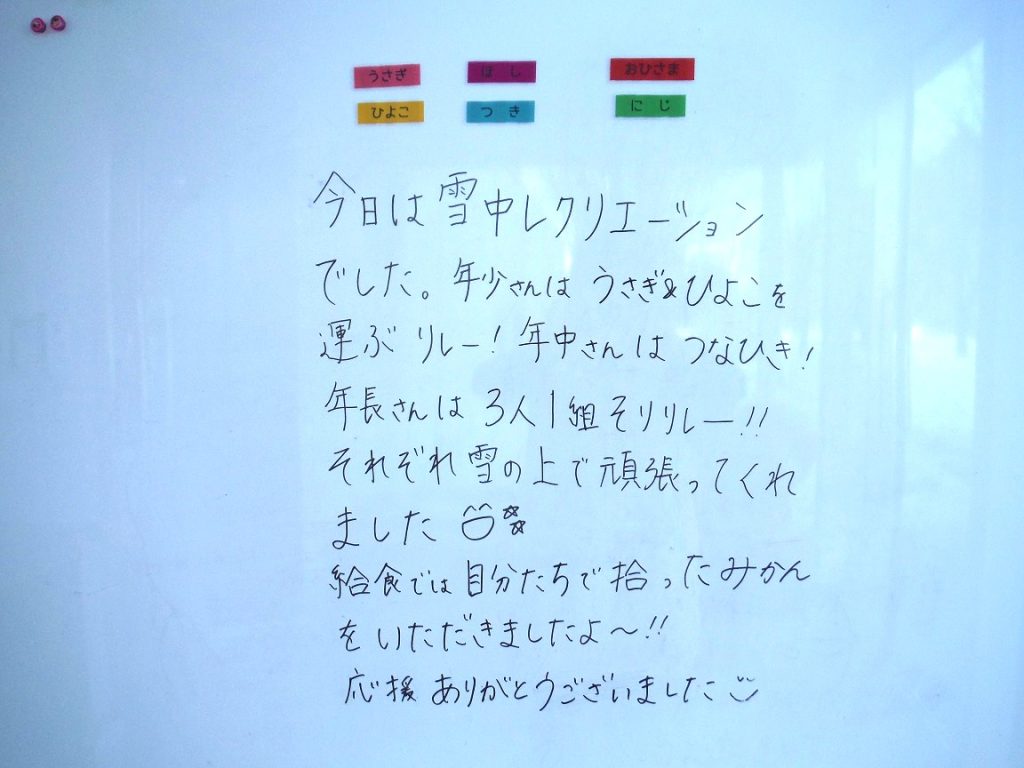 うさぎ ほし おひさま
ひよこ つき にじ
今日は雪中レクリエーション
でした。年少さんは うさぎ&ひよこを
運ぶ リレー! 年中さんは つなひき!
年長さんは 3人1組そりリレー!!
それぞれ雪の上で頑張ってくれ
ました
給食では自分たちで拾ったみかん
をいただきましたよ〜!!
応援ありがとうございました